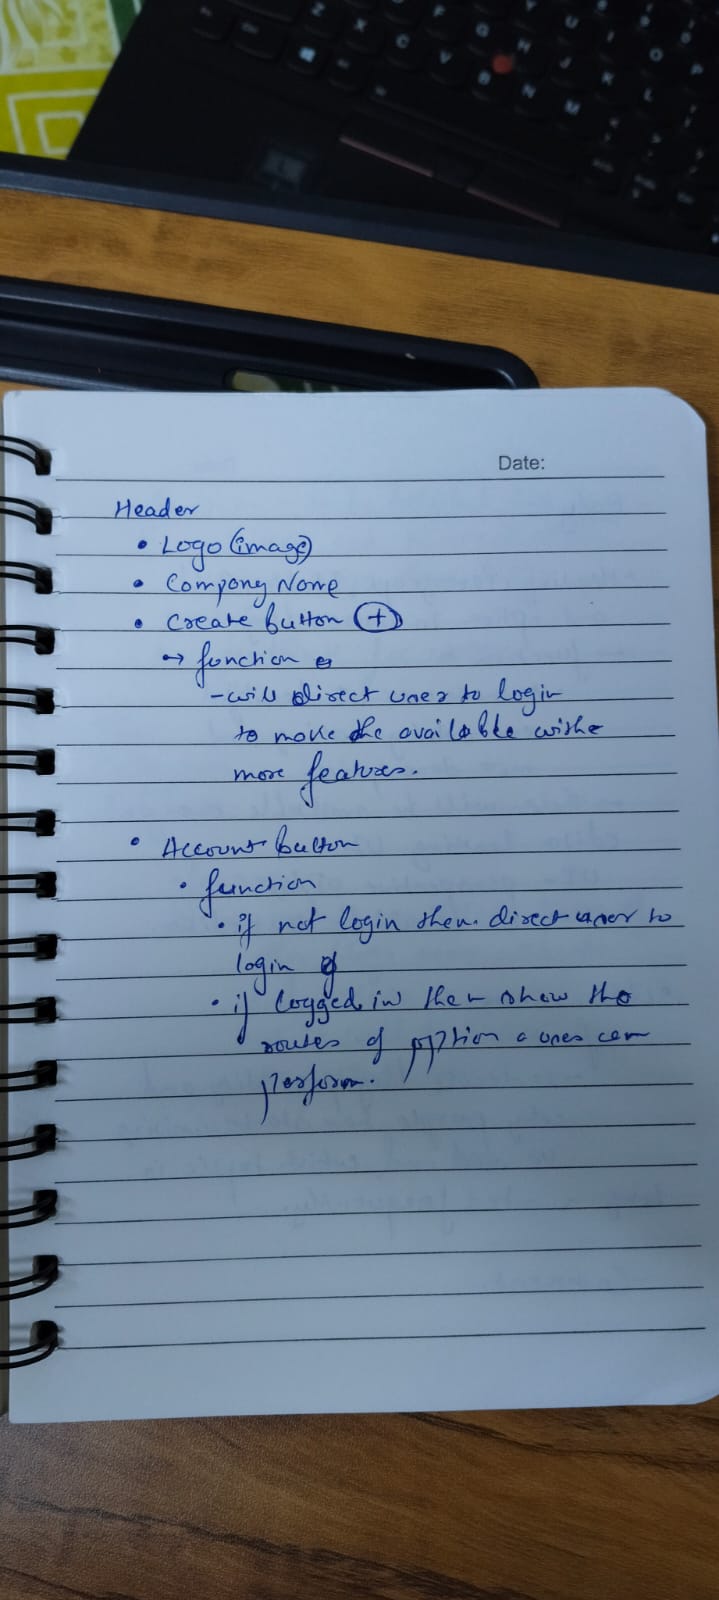 Date:
Header
• Logo (image)
• Company Name
• Create button (+)
→ function
- will direct user to login
to make the available with
more features.
• Account button
• function
• if not login then. direct user to
login
• if logged in then show the
routes of option a user can
perform.